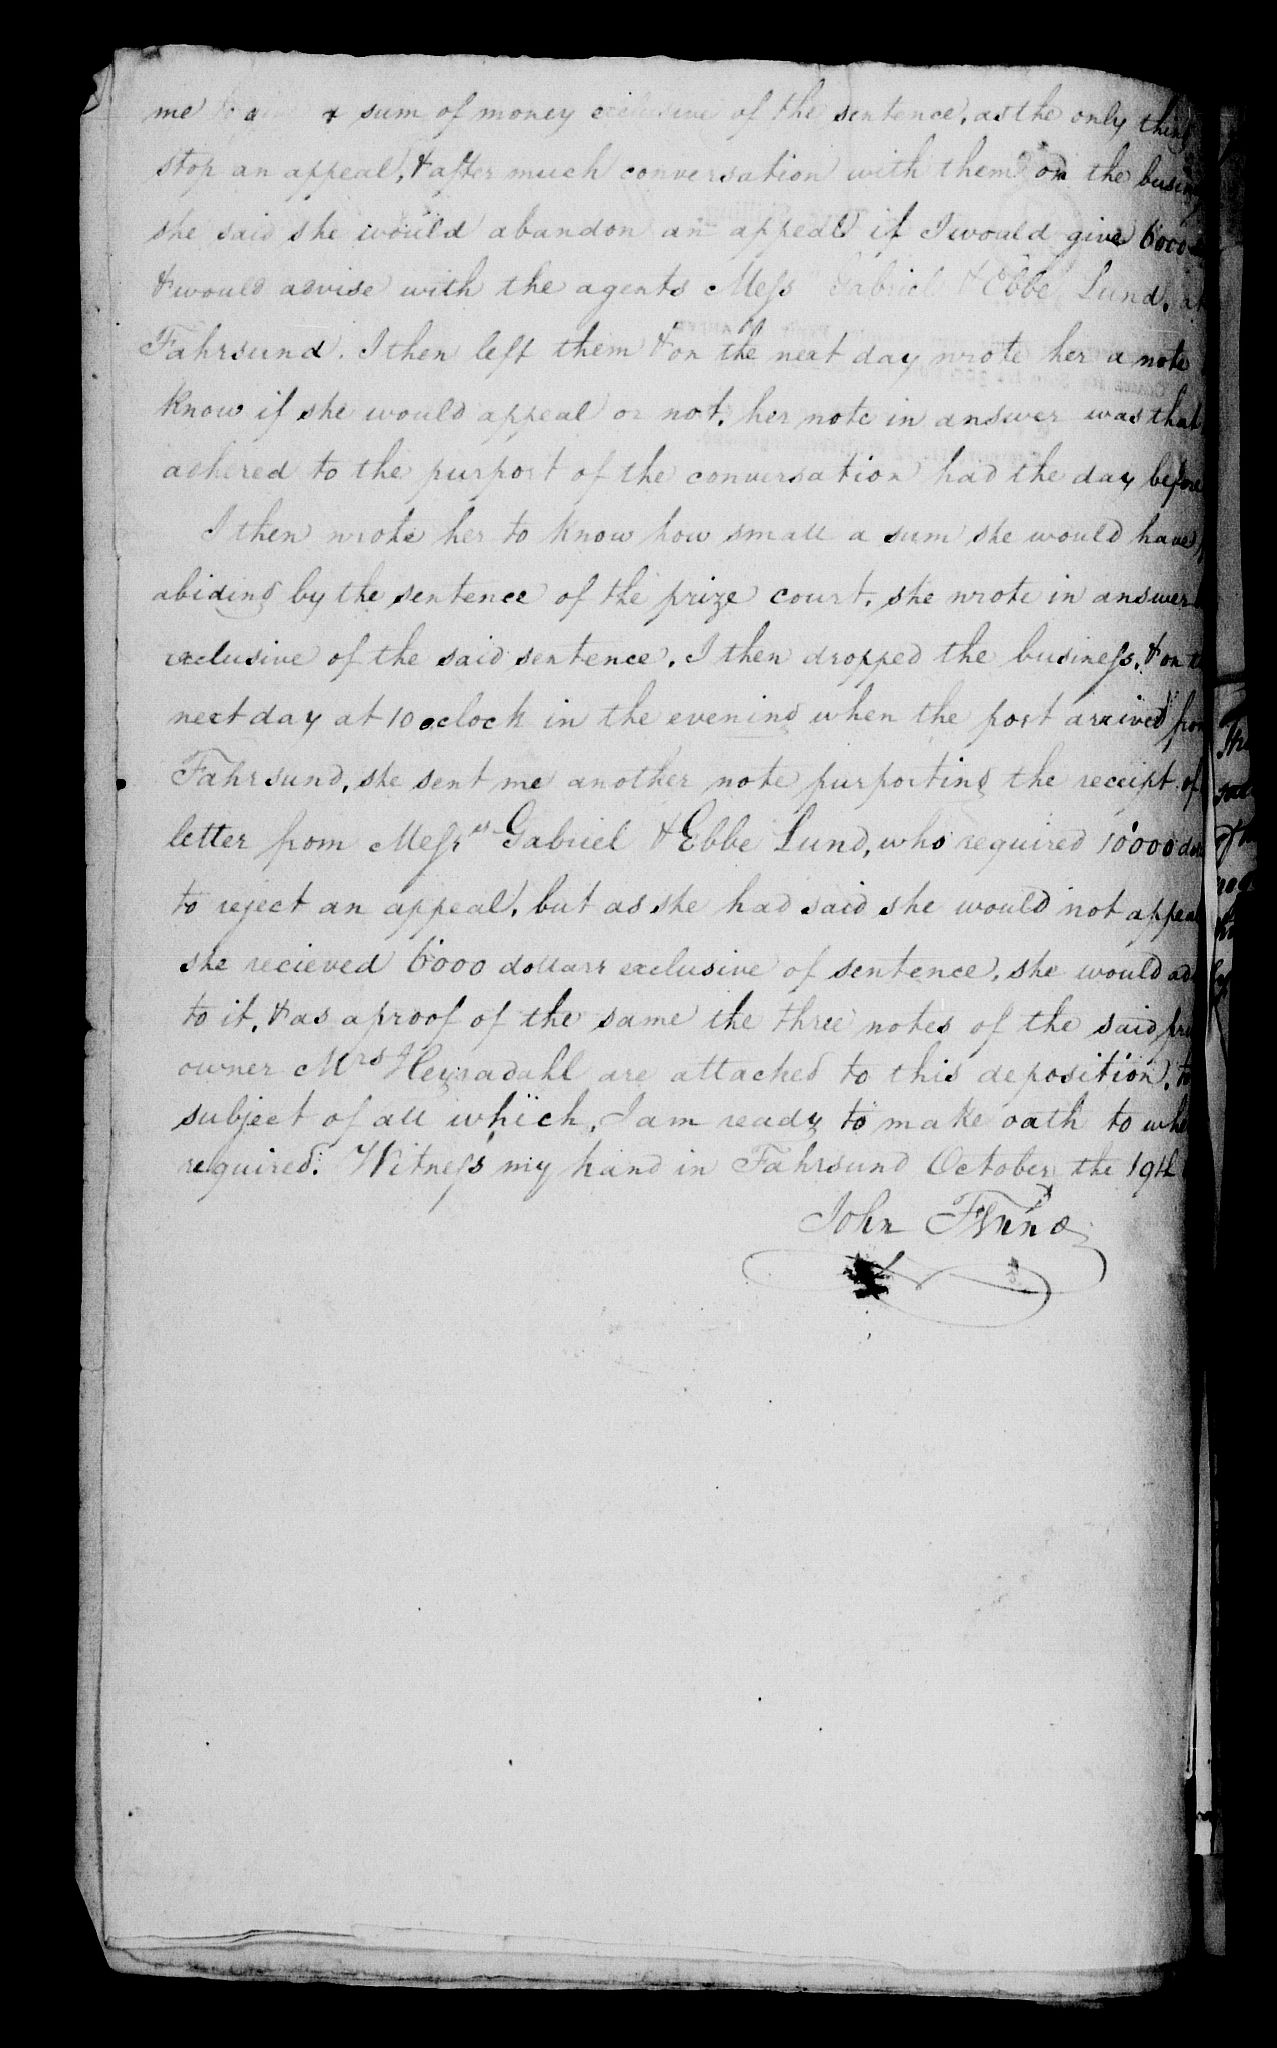 me to a sum of money exclusive of the sentence, as the only thing
stop an appeal, & after much conversation with them on the busin
she said she would abandon an appeal if I would give 6000
& would advise with the agents Mess Gabriel & Ebbe Lund, at
Fahrsund. I then left them & on the next day wrote her a note
know if she would appeal or not, her note in answer was that
adhered to the purport of the conversation had the day before
I then wrote her to know how small a sum she would have
abiding by the sentence of the prize court, she wrote in answer
exclusive of the said sentence. I then dropped the business, & on t
next day at 10 oclock in the evening when the post arrived from
Fahrsund, she sent me another note purporting the receipt of
letter from Messrs Gabriel & Ebbe Lund, who required 10'000 do
to reject an appeal, but as she had said she would not appea
she recieved 6'000 dollars exclusive of sentence, she would ad
to it, & as a proof of the same the three notes of the said pri
owner Mrs Heyradahl are attached to this deposition, to
subject of all which, I am ready to make oath to whe
required. Witness my hand in Fahrsund October the 19th
John